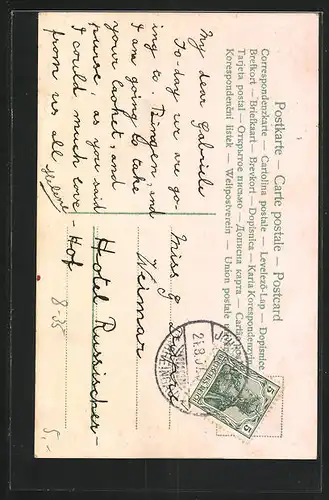 Postkarte — Carte postale — Postcard
Correspondenzkarte — Cartolina postale — Levelező-Lap — Dopisnice
Brefkort — Briefkaart — Brevkort — Dopisnica — Karta Korespondencyjna
Tarjeta postal — Открытое письмо — Дописна карта — Cartão
Korespondenční lístek — Weltpostverein — Union postale
My dear Gabriele
To-day we are go-
ing to Bingen, and
I am going to take
your cachet, and
purse, as you said
I could much love
from us all
Miss G.
Weimar
Hotel Russischer-
Hof
8-35
5,-
5
5